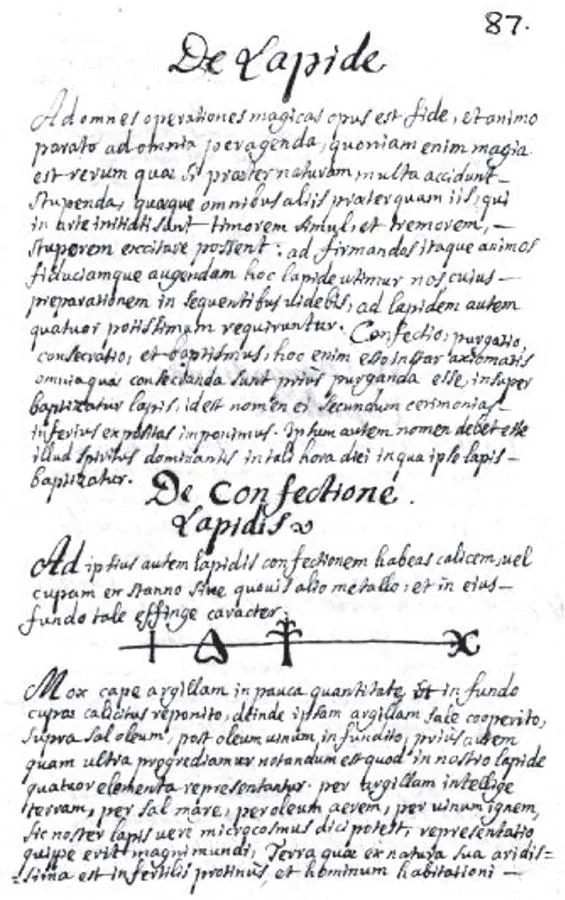 87.
De Lapide
Ad omnes operationes magicas opus est fide, et animo
parato ad omnia peragenda, quoniam enim magia
est rerum quae si praeter naturam multa accidunt
stupenda, quaeque omnibus aliis praterquam iis, qui
in arte initiati sunt timorem simul, et tremorem, —
stuporem excitare possent: ad firmandos itaque animos
fiduciamque augendam hoc lapide utimur nos, cuius —
preparationem in sequentibus videbis, ad lapidem autem
quatuor potissimum requiruntur. Confectio, purgatio,
consecratio, et baptismus, hoc enim esto instar axiomatis
omnia quae consecranda sunt prius purganda esse, insuper
baptizatur lapis, id est nomen ei secundum cerimonias
inferius expositas imponimus. Ipsum autem nomen debet esse
illud spiritus dominantis in tali hora diei in qua ipse lapis —
baptizatur.
De Confectione
Lapidis
Ad ipsius autem lapidis confectionem habeas calicem, vel
cupam ex stanno sive quovis alio metallo, et in eius —
fundo tale effinge caracter.
Mox cape argillam in pauca quantitate, et in fundo
cupae calicisve reponito, deinde ipsam argillam sale cooperito,
supra sal oleum, post oleum vinum infundito, prius autem
quam ultra progrediamur notandum est quod in nostro lapide
quatuor elementa representantur. per argillam intellige
terram, per sal mare, per oleum aerem, per vinum ignem,
sic noster lapis vere microcosmus dici potest, representatio
quippe erit magni mundi, Terra quae ex natura sua aridis=
sima est infertilis protinus, et hominum habitationi —